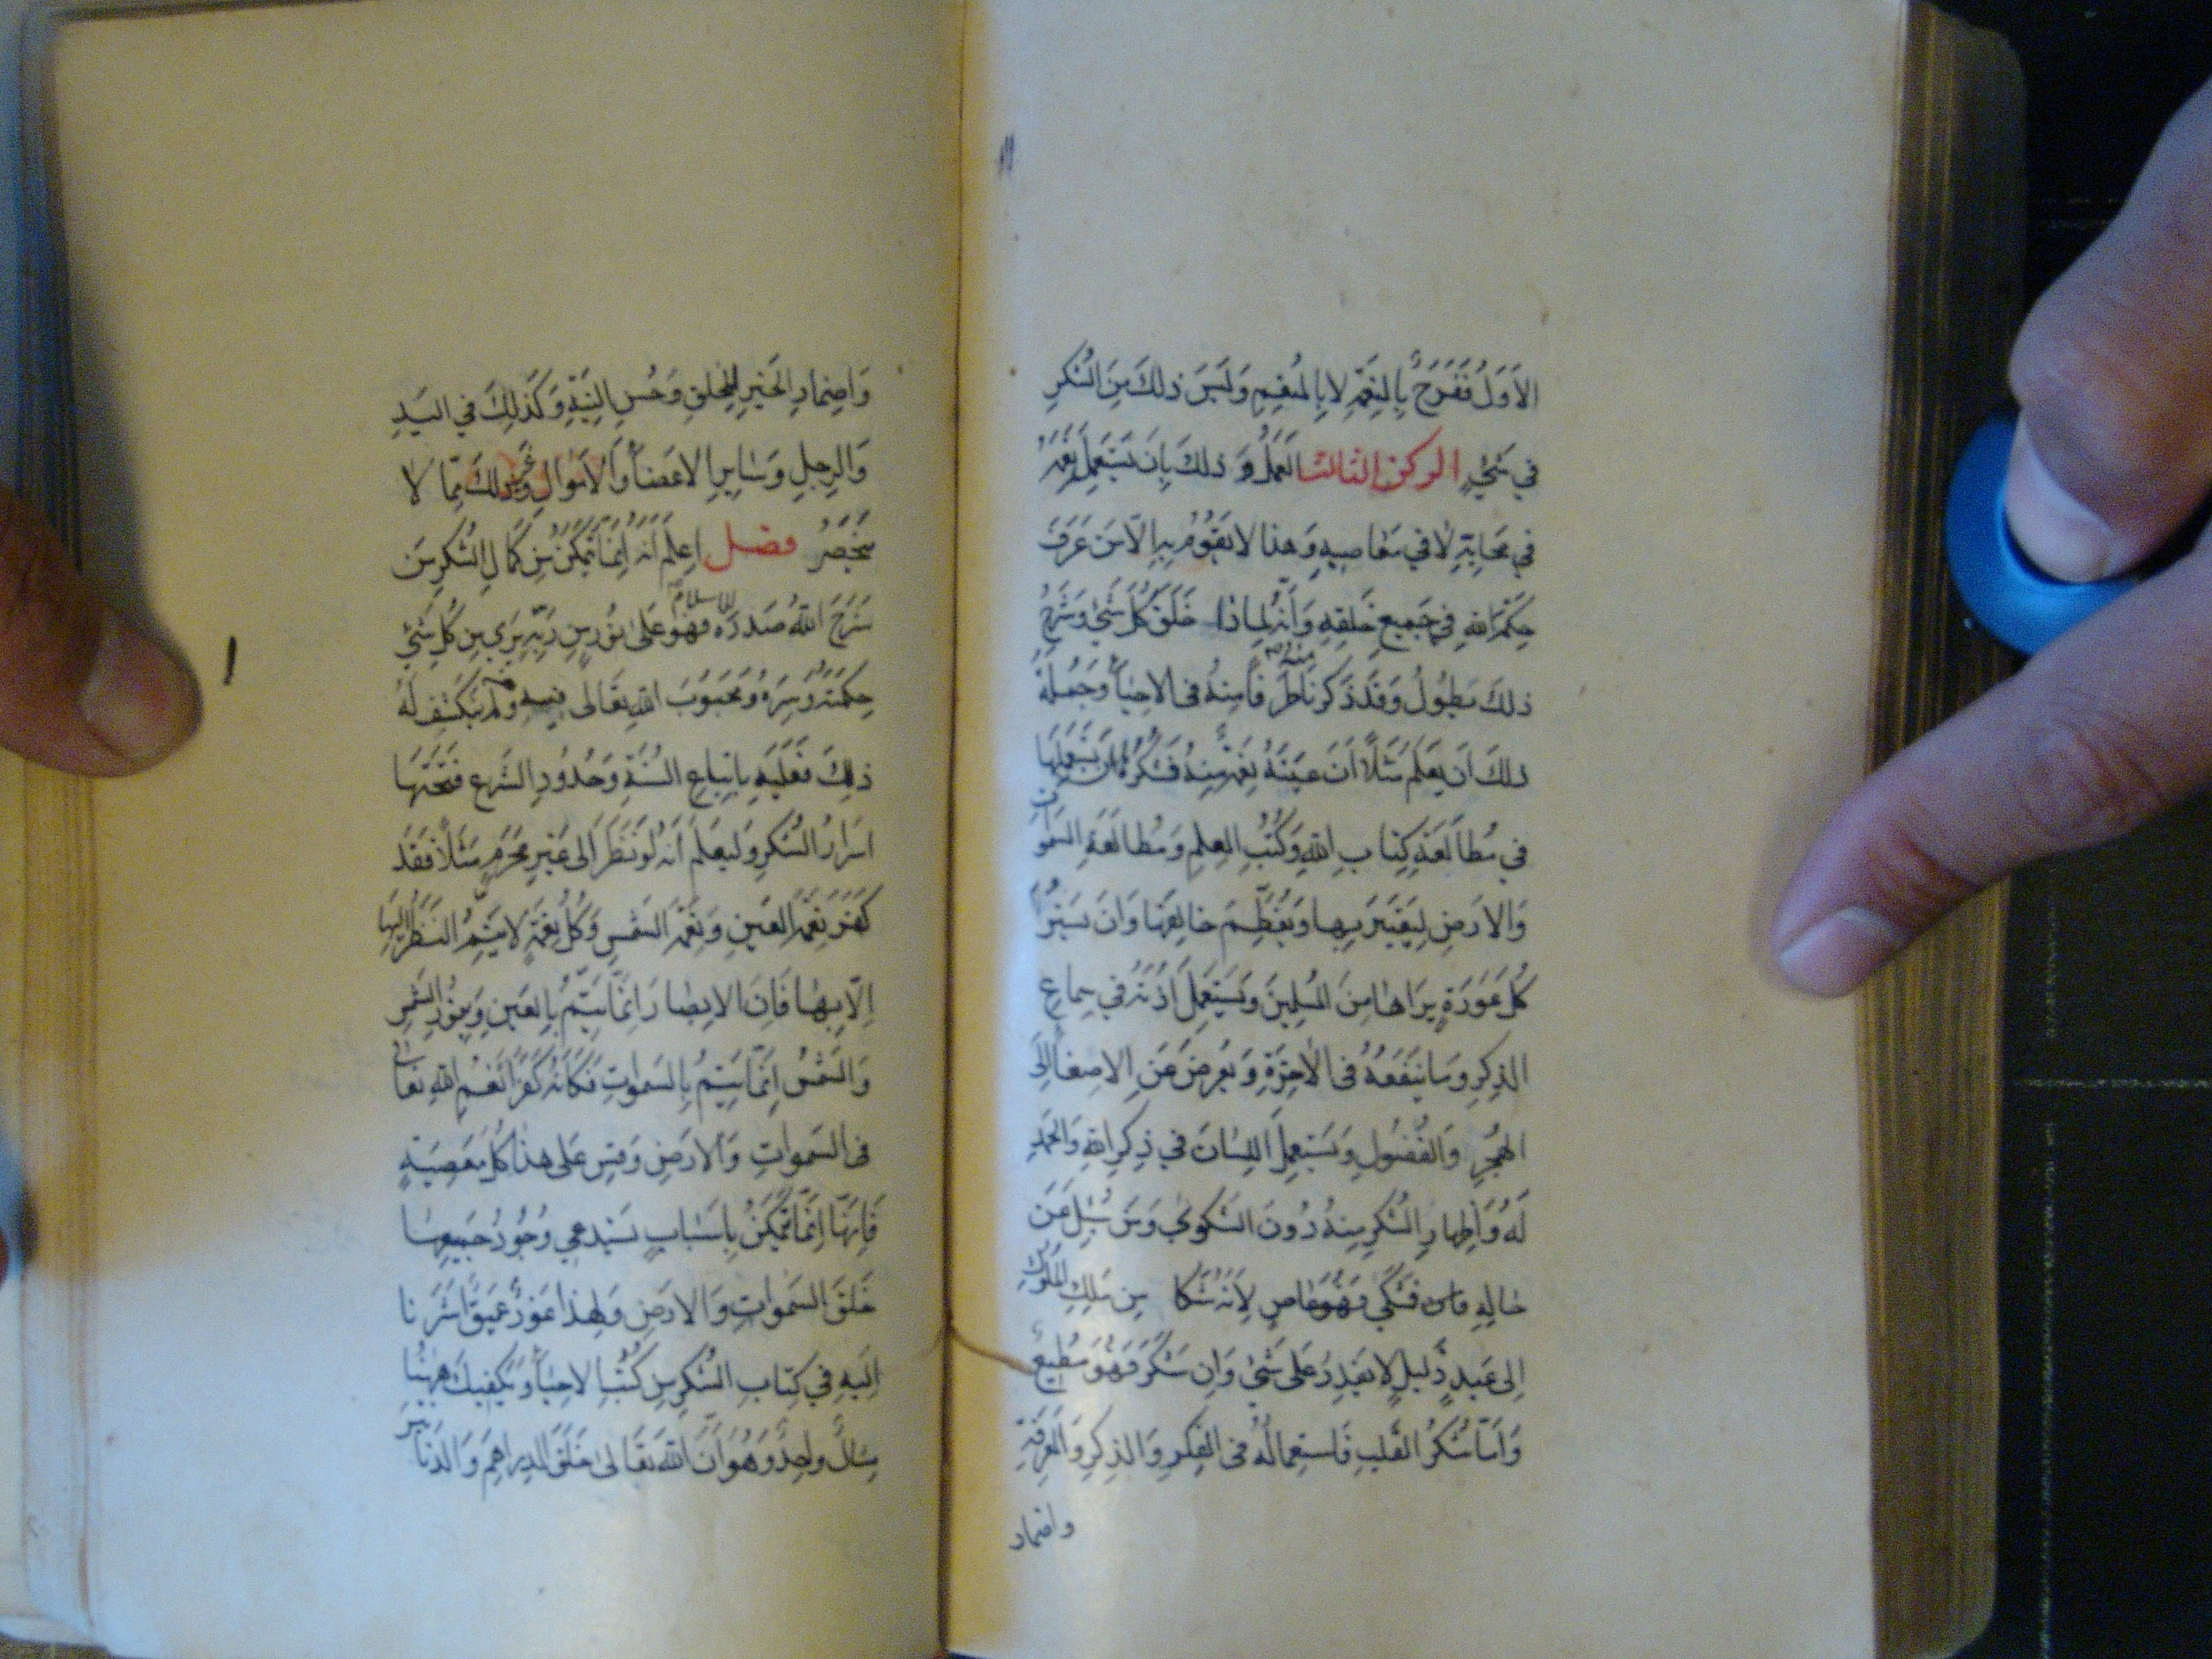 الاَوَلُ فَفَرَحٌ بِالنِعْمَةِ لا بِالمُنعِمِ وَلَيسَ ذلكَ مِنَ الشُكرِ
في شَيْءٍ الركن الثالث العَمَلُ وَ ذلكَ بِاَن يَستَعمِلَ نِعَمَهُ
في مَحَابِّهِ لا في مَعَاصيهِ وَهذا لا يَقُومُ بِهِ اِلاّ مَن عَرَفَ
حِكمَةَ اللهِ في جَميعِ خَلقِهِ وَاَنَّهُ لِماذا خَلَقَ كُلَّ شَيْءٍ وَشَرحُ
ذلكَ يَطُولُ وَقَد ذَكَرنا طَرَفًا مِنهُ في الاحيَاءِ وَجُملَةُ
ذلكَ اَن يَعلَمَ مَثَلاً اَنَّ عَينَهُ نِعمَةٌ مِنهُ فَشُكرُهُ اَن يَستَعمِلَهَا
في مُطالَعَةِ كِتابِ اللهِ وَكُتُبِ العِلمِ وَمُطالَعَةِ السَمواتِ
وَالاَرضِ لِيَعتَبِرَ بِها وَيُعَظِّمَ خالِقَهَا وَاَن يَستُرَ
كُلَّ عَورَةٍ يَراها مِنَ المُسلِمينَ وَيَستَعمِلَ اُذُنَهُ في سِماعِ
الذِكرِ وَما يَنفَعُهُ في الآخِرَةِ وَيُعرِضَ عَنِ الاِصغاءِ اِلَى
الهُجرِ وَالفُضُولِ وَيَستَعمِلَ اللِسَانَ في ذِكرِ اللهِ وَالحَمدِ
لَهُ وَاِظهارِ الشُكرِ مِنهُ دُونَ الشَكوى وَمَن سُئِلَ عَن
حالِهِ فَشَكَى فَهُوَ عَاصٍ لِاَنَّهُ شَكا مِن مَلِكِ المُلُوكِ
اِلى عَبدٍ ذَليلٍ لا يَقدِرُ عَلى شَيْءٍ وَاِن شَكَرَ فَهُوَ مُطِيعٌ
وَاَمّا شُكرُ القَلبِ فَاستِعمالُهُ في الفِكرِ وَالذِكرِ وَالمَعرِفَةِ
واضمار
وَاِضمارِ الخَيرِ لِلخَلقِ وَحُسنِ النِيَّةِ وَكَذلِكَ في اليَدِ
وَالرِجلِ وَسَايِرِ الاعضَاءِ وَالاَموَالِ وَغَيرِ ذلكَ مِمّا لا
يَنحَصِرُ فصل اِعلَم اَنَّهُ اِنَّمَا يَتَمَكَّنُ مِن كَمالِ الشُكرِ مَن
شَرَحَ اللهُ صَدرَهُ للاسلام فَهُوَ عَلى نُورٍ مِن رَبِّهِ يَرى مِن كُلِّ شَيْءٍ
حِكمَتَهُ وَسِرَّهُ وَمَحبُوبَ اللهِ تَعَالى فيهِ وَمَن لَم يَنكَشِف لَهُ
ذلكَ فَعَلَيهِ بِاتِّباعِ السُنَّةِ وَحُدُودِ الشَرعِ فَتَحتَهَا
اَسرَارُ الشُكرِ وَليَعلَم اَنَّهُ لَو نَظَرَ اِلى غَيرِ مَحرَمٍ مَثَلاً فَقَد
كَفَرَ نِعمَةَ العَينِ وَنِعمَةَ الشَمسِ وَكُلَّ نِعمَةٍ لا يَتِمُّ النَظَرُ اِليها
اِلاّ بِها فَاِنَّ الاِبصارَ اِنَّمَا يَتِمُّ بِالعَينِ وَبِنُورِ الشَمسِ
وَالشَمسُ اِنَّمَا يَتِمُ بِالسَمواتِ فَكَاَنَّهُ كَفَرَ اَنعُمَ اللهِ تَعالى
في السَمواتِ وَالاَرضِ وَقِس عَلى هذا كُلَّ مَعصِيَةٍ
فَاِنَّهَا اِنَّمَا تُمكِنُ بِاَسبَابٍ يَستَدعي وُجُودُ جَميعِهَا
خَلقَ السَمواتِ وَالاَرضِ وَلِهذا غَورٌ عَميقٌ اَشَرنا
اِلَيهِ في كِتابِ الشُكرِ مِن كُتُبِ الاحيَاءِ وَيَكفِيكَ ههُنَا
مِثالٌ واحِدٌ وَهُوَ اَنَّ اللهَ تَعَالى خَلَقَ الدَراهِمَ وَالدَنانير